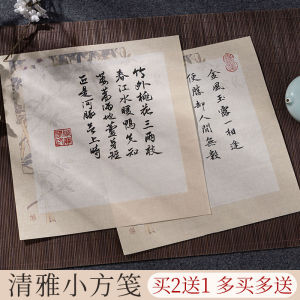 竹外桃花三兩枝
春江水暖鴨先知
蔞蒿滿地蘆芽短
正是河豚欲上時
金風玉露一相逢
便勝却人間無數
清雅小方笺
买2送1 多买多送